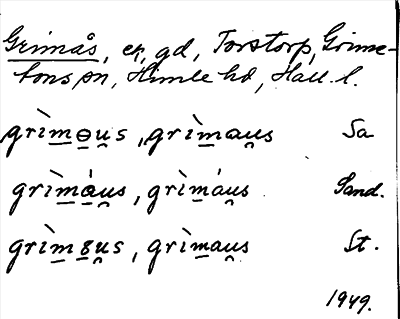 Grimås, en, gd, Torstorp, Grime-
tons sn, Himle hd, Hall. l.
grìmɵu̯s, grìmau̯s Sa
grìmáu̯s, grìmáu̯s Sand.
grìmȣu̯s, grìmau̯s St.
1949.